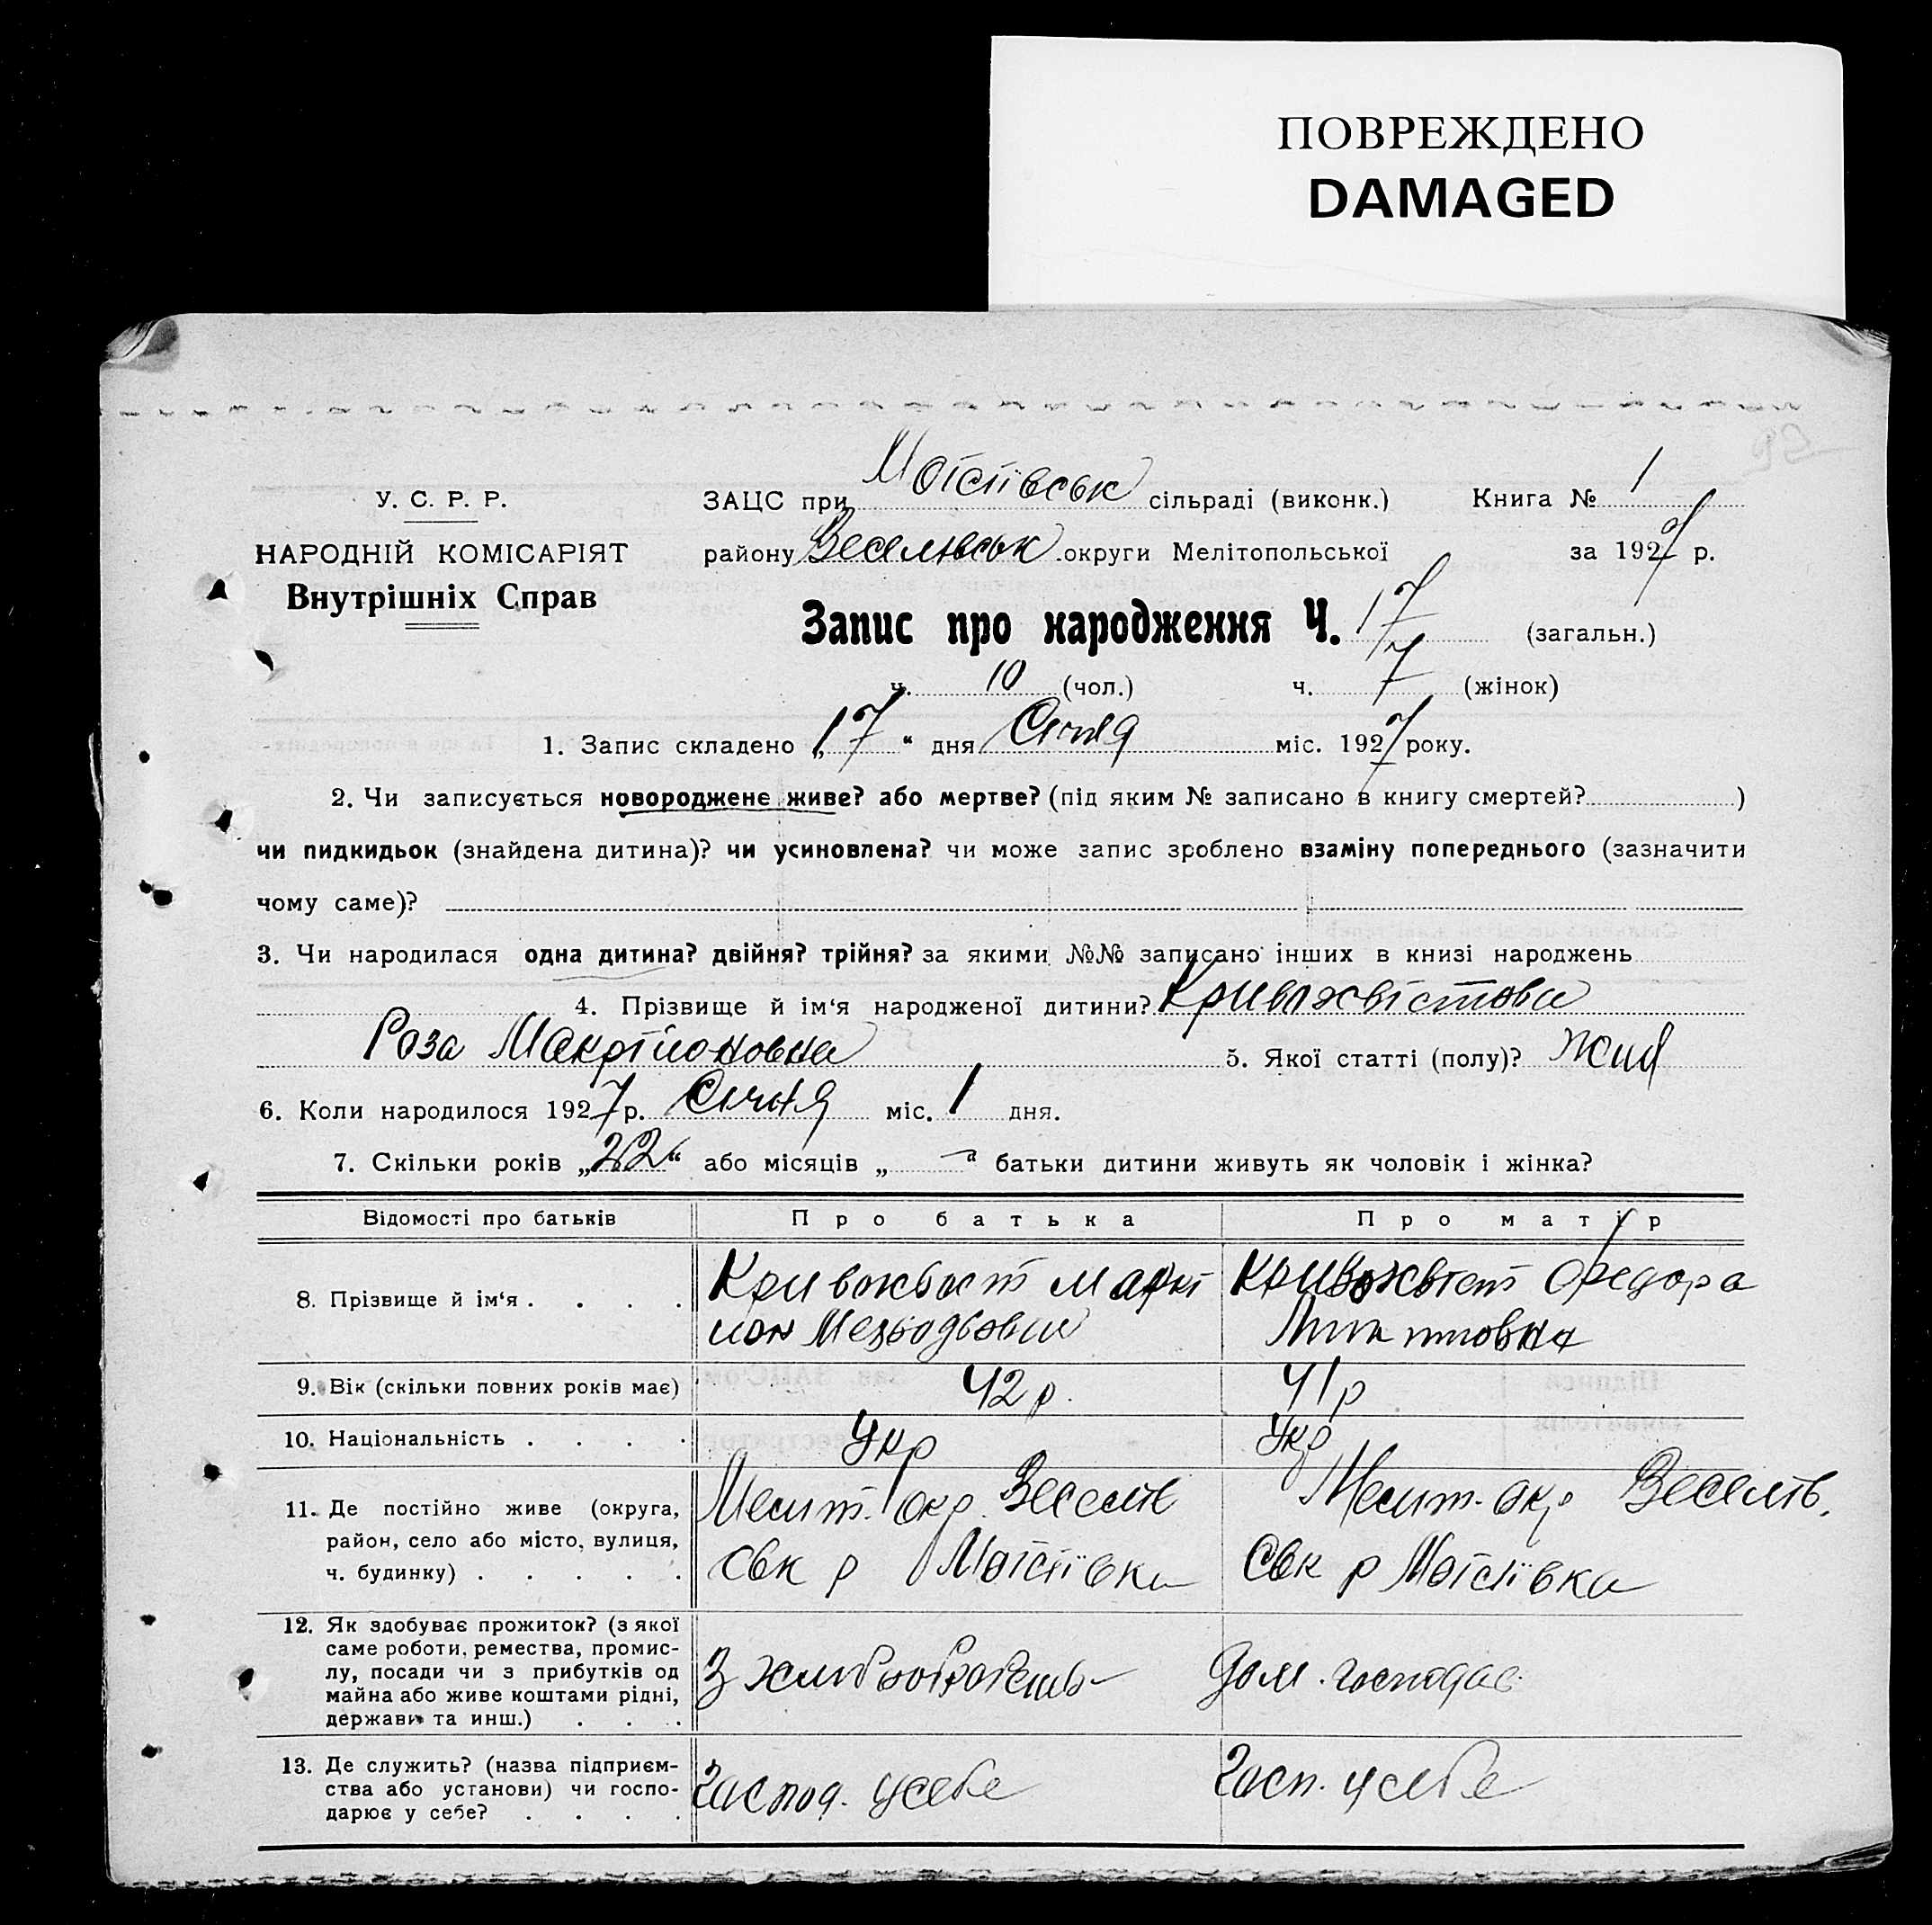 ПОВРЕЖДЕНО
DAMAGED
У. С. Р. Р.
НАРОДНІЙ КОМІСАРІЯТ
Внутрішніх Справ
ЗАЦС при Мойсіївськ сільраді (виконк.) Книга № 1
району Веселівськ округи Мелітопольської за 1927 р.
Запис про народження Ч. 17 (загальн.)
ч. 10 (чол.) ч. 7 (жінок)
1. Запис складено „17“ дня Січня міс. 1927 року.
2. Чи записується новороджене живе? або мертве? (під яким № записано в книгу смертей? )
чи пидкидьок (знайдена дитина)? чи усиновлена? чи може запис зроблено взаміну попереднього (зазначити
чому саме)?
3. Чи народилася одна дитина? двійня? трійня? за якими №№ записано інших в книзі народжень
4. Прізвище й ім‘я народженої дитини? Кривохвістова
Роза 5. Якої статті (полу)?
6. Коли народилося 1927 р. Січня міс. 1 дня.
7. Скільки років „22“ або місяців „—“ батьки дитини живуть як чоловік і жінка?
Відомості про батьків Про батька Про матір
8. Прізвище й ім‘я . . . . Кривохвист Кривохвист Федора
9. Вік (скільки повних років має) 42 р. 41 р
10. Національність . . . . Укр Укр
11. Де постійно живе (округа,
район, село або місто, вулиця,
ч. будинку) . . . . .
Мелит. окр. Веселів Мелит. окр Веселів.
свк р Моїсіївка свк р Моїсіївка
12. Як здобуває прожиток? (з якої
саме роботи, ремества, промис-
лу, посади чи з прибутків од
майна або живе коштами рідні,
держави та инш.) . . .
З Дом. господар
13. Де служить? (назва підприєм-
ства або установи) чи госпо-
дарює у себе? . . . .
Господ. усебе Госп. усебе